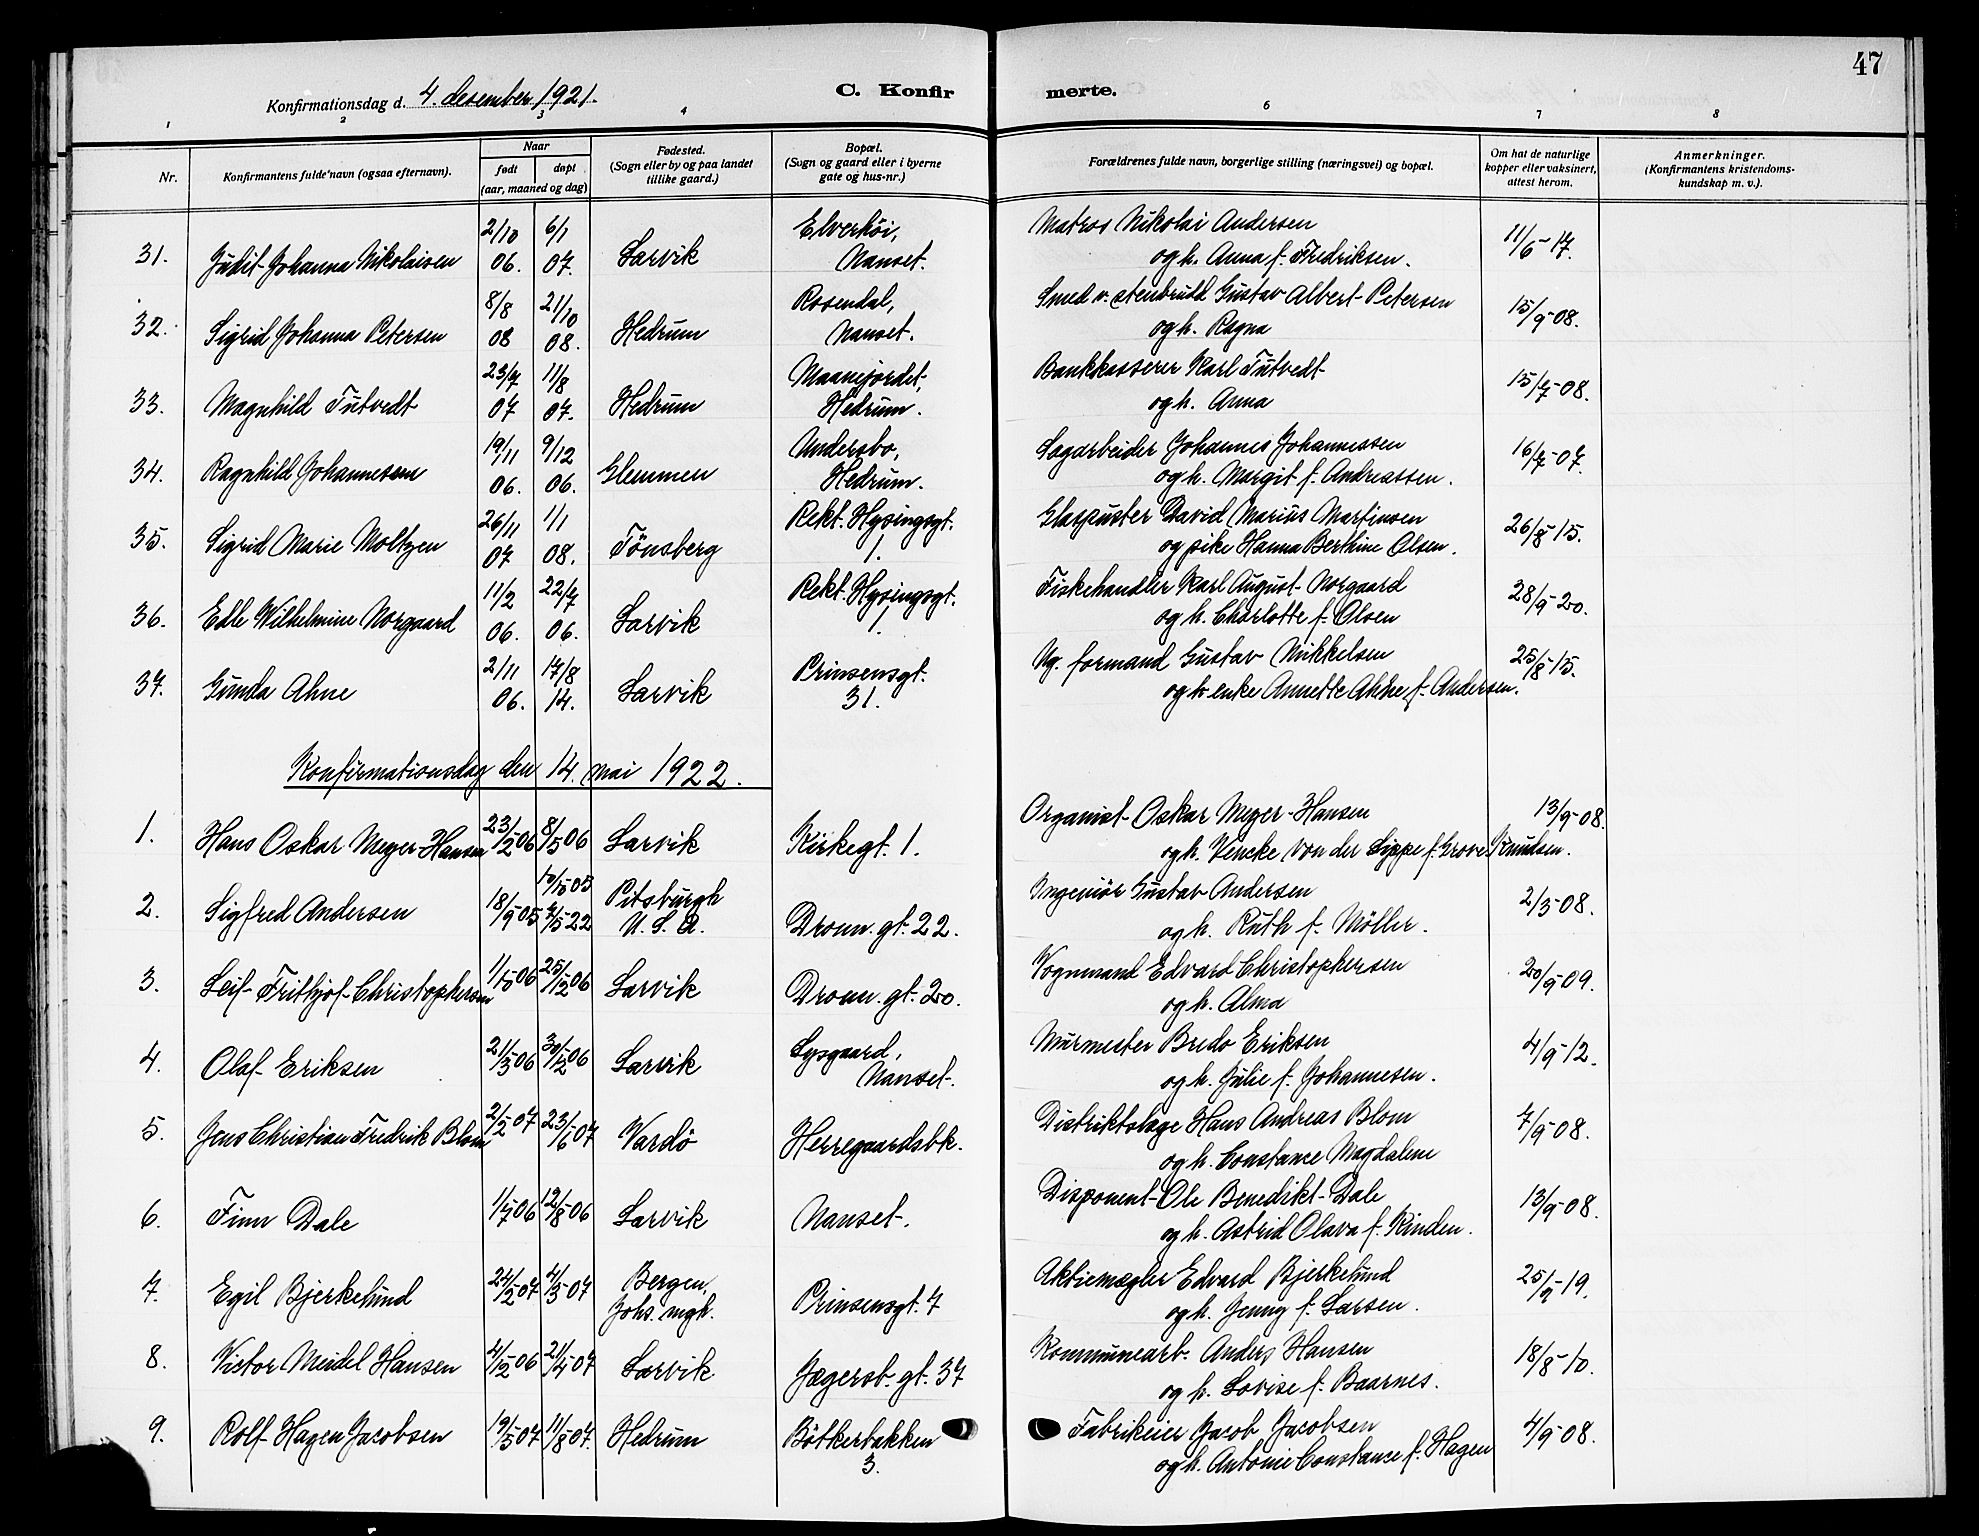 47
Konfirmationsdag d. 4. desember 1921.
C. Konfir
merte.
1 2 3 4 6 7 8
Nr.
Konfirmantens fulde navn (ogsaa efternavn).
Naar
født
døpt
(aar, maaned og dag)
Fødested.
(Sogn eller by og paa landet
tillike gaard.)
Bopæl.
(Sogn og gaard eller i byerne
gate og hus-nr.)
Forældrenes fulde navn, borgerlige stilling (næringsvei) og bopæl.
Om hat de naturlige
kopper eller vaksinert,
attest herom.
Anmerkninger.
(Konfirmantens kristendoms-
kundskap m. v.).
2/10 6/1 Elverhöi, Matros Nikolai Andersen 11/6-17.
31. Judit Johanna Nikolaisen 06. 07. Larvik Nanset. og h. Anna f. Fredriksen.
8/8 21/10 Rosendal, Smed v. stenbrudd Gustav Albert Petersen 15/9-08.
32. Sigrid Johanna Petersen 08 08. Hedrum Nanset. og h. Ragna
23/7 11/8 Maanejordet, Bankkasserer Karl Tutvedt 15/7-08.
33. Magnhild Tutvedt 07 07. Hedrum Hedrum. og h. Anna
19/11 9/12 Andersbo, Sagarbeider Johannes Johannessen 16/7-07.
34. Ragnhild Johannesen 06. 06. Glemmen Hedrum. og h. Margit f. Andreassen.
26/11 1/1 Rekt. Hysingsgt. Glaspuster David Marius Martinsen 26/8-15.
35. Sigrid Marie Moltzen 07 08. Tönsberg 1. og pike Hanna Berthine Olsen.
11/2 22/7 Rekt. Hysingsgt. Fiskehandler Karl August Norgaard 28/9-20.
36. Edle Wilhelmine Norgaard 06. 06. Larvik 1. og h. Charlotte f. Olsen
2/11 17/8 Prinsensgt. Ug. formand Gustav Mikkelsen 25/8-15.
37. Gunda Ahne 06. 14. Larvik 31. og enke Annette Ahne f. Andersen.
Konfirmationsdag den 14. mai 1922.
Organist Oskar Meyer-Hansen 13/9-08.
1. Hans Oskar Meyer Hansen 23/2 06 8/5 06 Larvik Kirkegt. 1. og h. Vencke von der Lippe f. Grove Knudsen.
10/10 05 Pitsburgh Ingeniör Gustav Andersen 2/3-08.
2. Sigfred Andersen 18/9-05 7/5-22 U. S. A. Dronn. gt. 22. og h. Ruth f. Möller.
Vognmand Edvard Christophersen 20/9-09.
3. Leif Frithjof Christophersen 1/10 06 25/12 06 Larvik Dronn. gt. 20. og h. Alma
Lysgaard, Murmester Bredo Eriksen 4/9-12.
4. Olaf Eriksen 21/3 06 30/12 06 Larvik Nanset. og h. Julie f. Johannesen.
Distriktslæge Hans Andreas Blom 7/9-08.
5. Jens Christian Fredrik Blom 2/2 07 23/6 07 Vardö Herregaardsbk. og h. Constance Magdalene
Disponent Ole Benedikt Dale 13/9-08.
6. Finn Dale 1/7 06 12/8-06 Larvik Nanset. og h. Astrid Olava f. Kinden.
Bergen, Aktiemegler Edvard Bjerkelund 25/2-19.
7. Egil Bjerkelund 24/2-07 4/3 07 Johs. mgh. Prinsensgt. 7 og h. Jenny f. Larsen.
Kommunearb. Anders Hansen 18/8-10.
8. Victor Meidel Hansen 4/12 06 21/4-07 Larvik Jægersb. gt. 37 og h. Lovise f. Baarnes.
Fabrikeier Jacob Jacobsen 4/9-08.
9. Rolf Hagen Jacobsen 19/5-07 11/8-07. Hedrum Bötkerbakken 3. og h. Antonie Constance f. Hagen